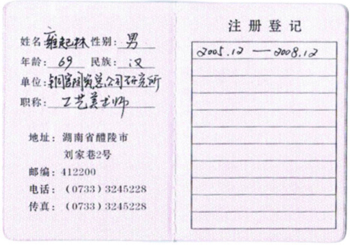 姓名 雍起林 性别: 男
年龄: 69 民族: 汉
单位: 铜官陶瓷总公司研究所
职称: 工艺美术师
地址: 湖南省醴陵市
刘家巷2号
邮编: 412200
电话: (0733) 3245228
传真: (0733) 3245228
注册登记
2005.12 — 2008.12